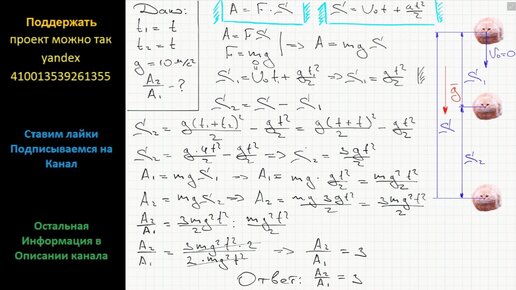 Поддержать
проект можно так
yandex
410013539261355
Ставим лайки
Подписываемся на
Канал
Остальная
Информация в
Описании канала
Дано:
t₁ = t
t₂ = t
g = 10 м/с²
A₂/A₁ - ?
A = F · S
S = U₀t + at²/2
A = F · S
F = mg | => A = mgS
0
S₁ = U₀t + gt²/2 => S₁ = gt²/2
S₂ = S - S₁
S₂ = g(t₁+t₂)²/2 - gt²/2 = g(t+t)²/2 - gt²/2
S₂ = g·4t²/2 - gt²/2 => S₂ = 3gt²/2
A₁ = mgS₁ => A₁ = mg · gt²/2 = mg²t²/2
A₂ = mgS₂ => A₂ = mg 3gt²/2 = 3mg²t²/2
A₂/A₁ = 3mg²t²/2 : mg²t²/2
A₂/A₁ = 3mg²t²·2/2·mg²t² => A₂/A₁ = 3
Ответ: A₂/A₁ = 3
U₀=0
S₁
g
S
S₂